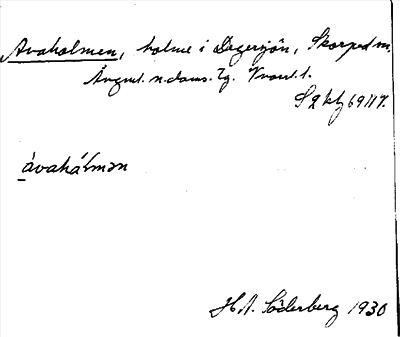 Avaholmen, holme i Degersjön, Skorped sn,
Ångml. n. doms. tg. Västl. l.
S 2 kbl 69117.
àvahál̀mən
H. A. Söderberg 1930